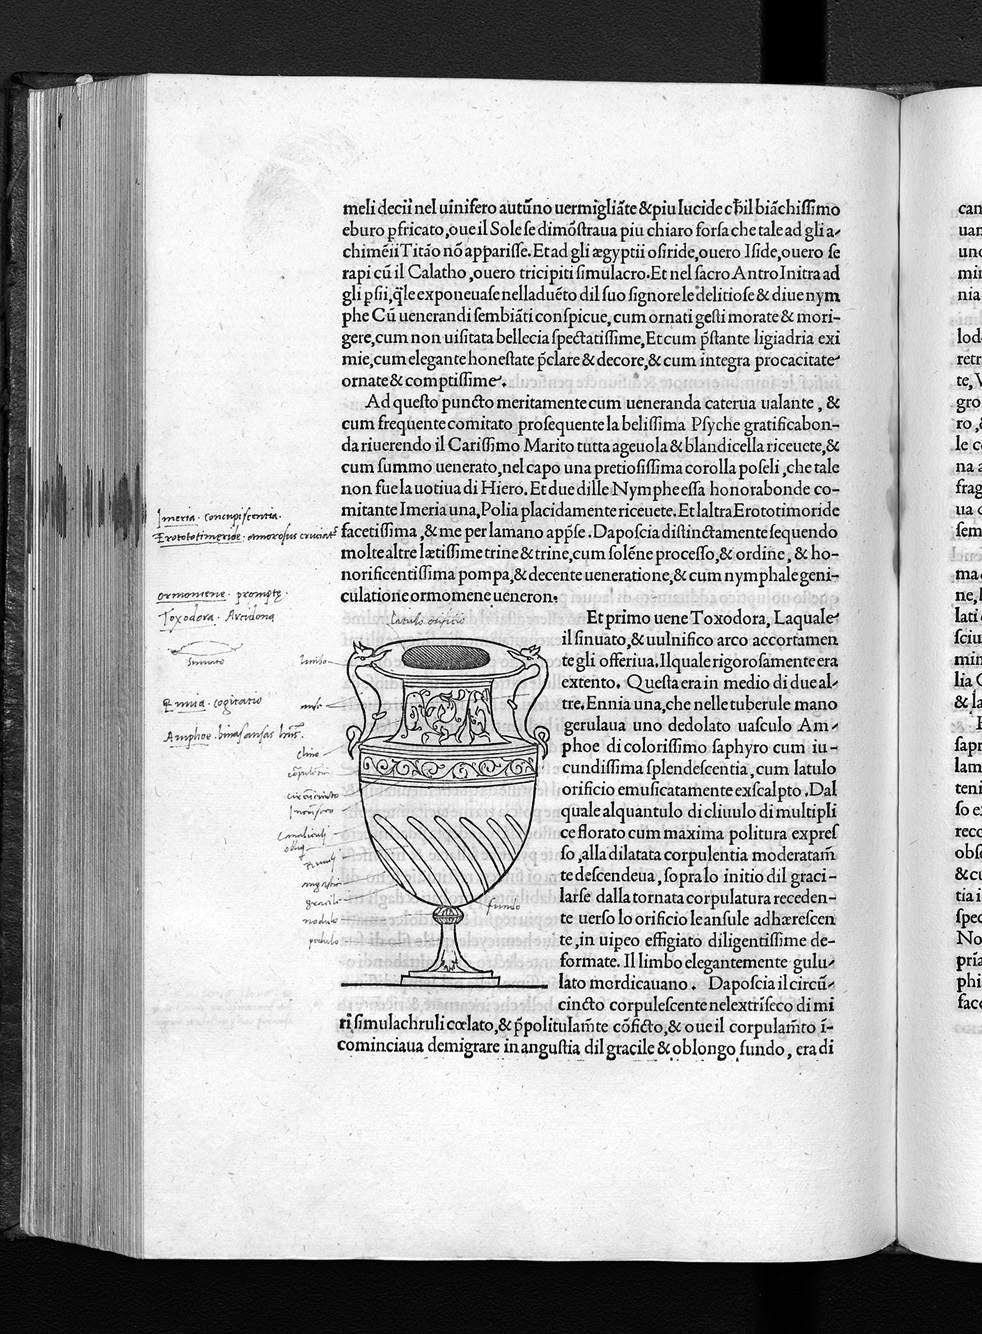 meli decii nel uinifero autũno uermigliãte & piu lucide cħil biãchissimo
eburo pfricato, oue il Sole se dimõstraua piu chiaro forsa che tale ad gli a-
chimẽii Titão nõ apparisse. Et ad gli ægyptii osiride, ouero Iside, ouero se
rapi cũ il Calatho, ouero tricipiti simulacro. Et nel sacro Antro Initra ad
gli psii, q̃le exponeuase nelladuẽto dil suo signore le delitiose & diue nym
phe Cũ uenerandi sembiãti conspicue, cum ornati gesti morate & mori-
gere, cum non uisitata bellecia spectatissime, Et cum p̃stante ligiadria exi
mie, cum elegante honestate p̃clare & decore, & cum integra procacitate
ornate & comptissime.
Ad questo puncto meritamente cum ueneranda caterua ualante, &
cum frequente comitato prosequente la belissima Psyche gratificabon-
da riuerendo il Carissimo Marito tutta ageuola & blandicella riceuete, &
cum summo uenerato, nel capo una pretiosissima corolla poseli, che tale
non fue la uotiua di Hiero. Et due dille Nymphe essa honorabonde co-
mitante Imeria una, Polia placidamente riceuete. Et laltra Erototimoride
facetissima, & me per la mano app̃se. Daposcia distinctamente sequendo
molte altre lætissime trine & trine, cum solẽne processo, & ordine, & ho-
norificentissima pompa, & decente ueneratione, & cum nymphale geni-
culatione ormomene ueneron.
Imeria. concupiscentia.
Erototimeride. amorosus cruciatꝰ
ormomene. promptę
Toxodora. Arcidona
sinuato
Ennia. cogitatio
Amphoe. binas ansas hñs.
Latulo orificio
limbo
anse
clino
circũcincto
Canaliculi
gracile
nodulo
fundo
Et primo uene Toxodora, Laquale
il sinuato, & uulnifico arco accortamen
te gli offeriua. Ilquale rigorosamente era
extento. Questa era in medio di due al-
tre. Ennia una, che nelle tuberule mano
gerulaua uno dedolato uasculo Am-
phoe di colorissimo saphyro cum iu-
cundissima splendescentia, cum latulo
orificio emusicatamente exscalpto. Dal
quale alquantulo di cliuulo di multipli
ce florato cum maxima politura expres
so, alla dilatata corpulentia moderatam̃
te descendeua, sopra lo initio dil graci-
larse dalla tornata corpulatura receden-
te uerso lo orificio le ansule adhærescen
te, in uipeo effigiato diligentissime de-
formate. Il limbo elegantemente gulu-
lato mordicauano. Daposcia il circũ-
cincto corpulescente nel extriseco di mi
ri simulachruli cœlato, & p̃politulam̃te cõficto, & oue il corpulam̃to ĩ-
cominciaua demigrare in angustia dil gracile & oblongo fundo, era di